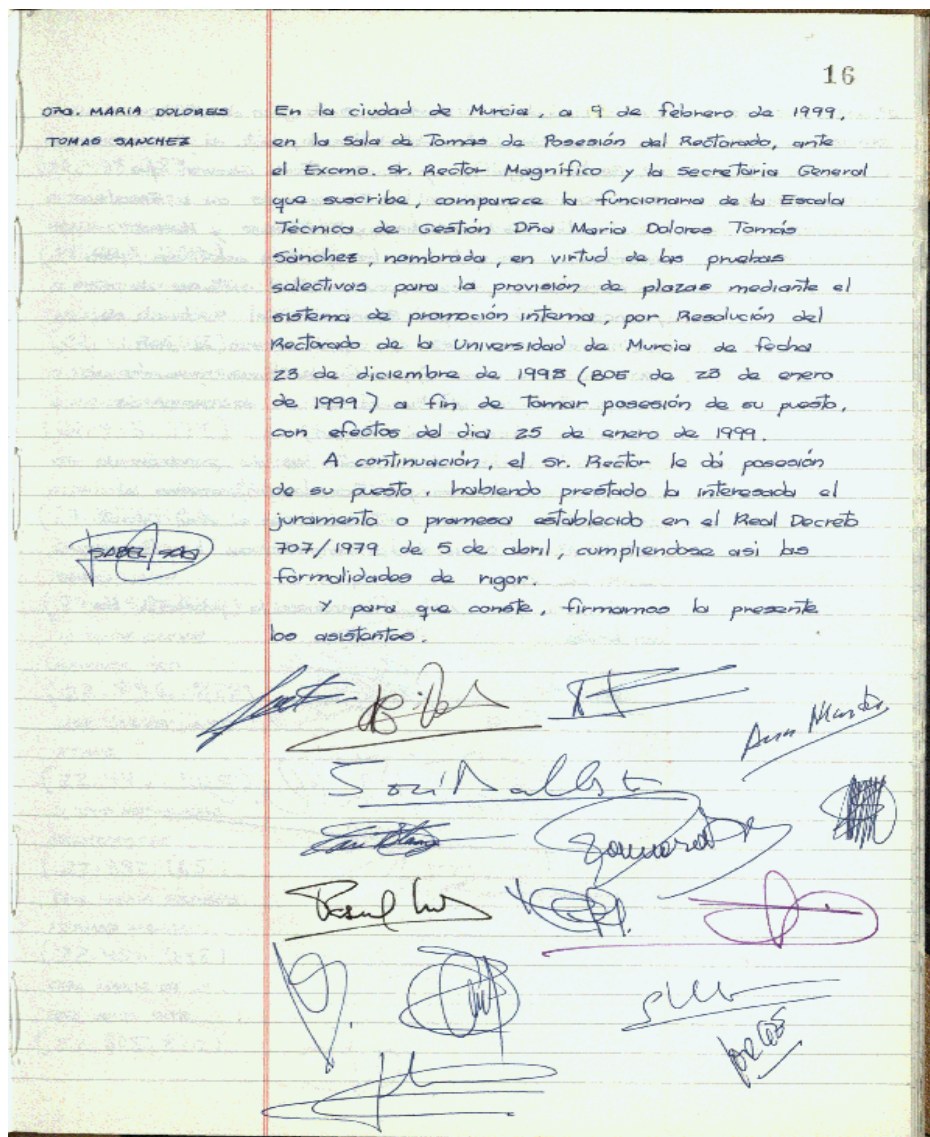 16
DÑA. MARIA DOLORES
TOMAS SANCHEZ
En la ciudad de Murcia, a 9 de febrero de 1999,
en la Sala de Tomas de Posesión del Rectorado, ante
el Excmo. Sr. Rector Magnífico y la Secretaria General
que suscribe, comparece la funcionaria de la Escala
Técnica de Gestión Dña Maria Dolores Tomás
Sánchez, nombrada, en virtud de las pruebas
selectivas para la provisión de plazas mediante el
sistema de promoción interna, por Resolución del
Rectorado de la Universidad de Murcia de fecha
23 de diciembre de 1998 (BOE de 23 de enero
de 1999) a fin de tomar posesión de su puesto,
con efectos del dia 25 de enero de 1999.
A continuación, el Sr. Rector le dá posesión
de su puesto, habiendo prestado la interesada el
juramento o promesa establecido en el Real Decreto
707/1979 de 5 de abril, cumpliendose asi las
formalidades de rigor.
Y para que conste, firmamos la presente
los asistentes.